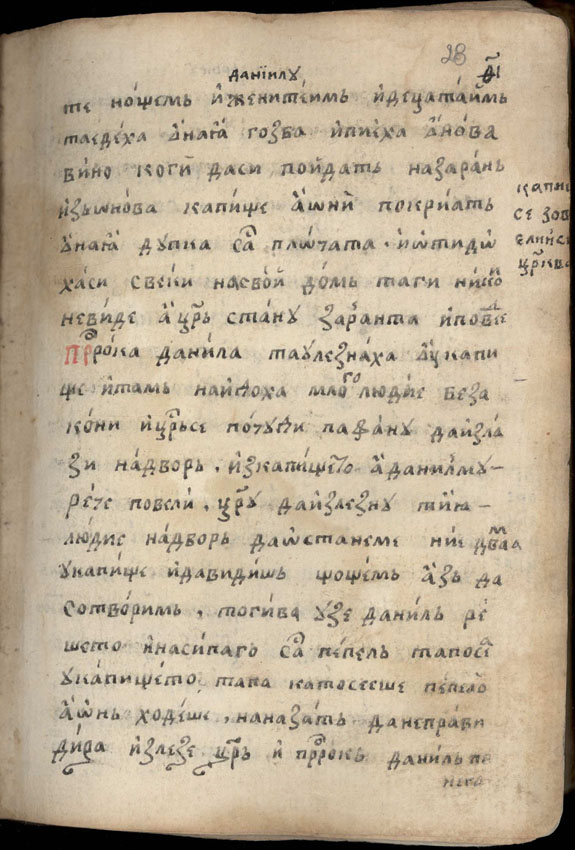 28
данїилꙋ
те но́щемь и҆женитеимь и҆децата҆имь
таедеха ѻнаꙗ҆ гозба и҆пиеха ѻ҆нова
вино когѝ даси пойдать назарань
и҆зьѡнова капище а҆ѡнѝ покриать
ꙋнаꙗ҆ дꙋпка са плочата. и҆ѿидѡ
хаси свеки насвой домь таги ники
невиде а҆ црь станꙋ зараⷩ҇та и҆пове
прⷪ҇рока данила таꙋлезнаха ꙋкапи
ще и҆тамь найдоха много людїе беза
кони и҆црьсе потꙋпи пафанꙋ даи҆зла
зи надворь. и҆зкапището а҆данилмꙋ-
рече повели. црꙋ даи҆злезнꙋ тиꙗ-
людие надворь даѡстанеме ние двама
ꙋкапище и҆давидишь щощемь а҆зь да
сотворимь. тогива ꙋзе данїль ре
шето и҆насипаго са пепель тапосеа
ꙋкапището, тапа катосееше пепело
а҆ѡнь ходеше. наназать данеправи
дира и҆злезе црь и҆ прⷪ҇рокь данїль по
капи
се зов
црква